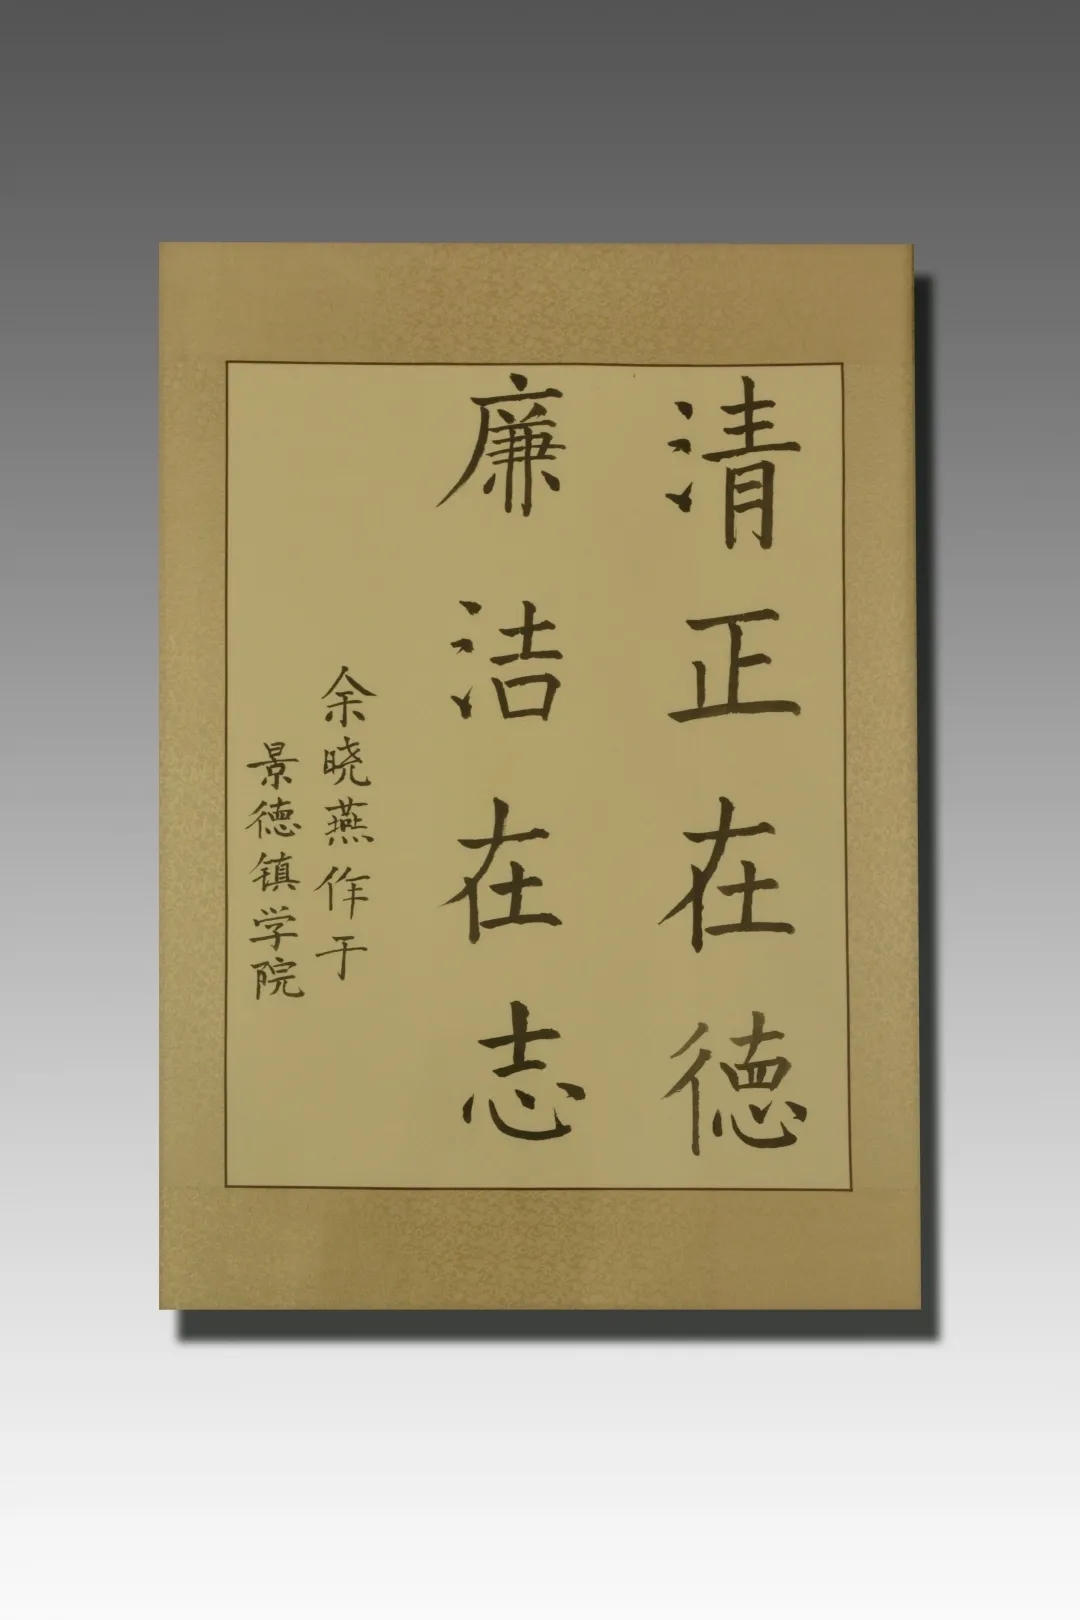 清正在德
廉洁在志
余晓燕作于
景德镇学院